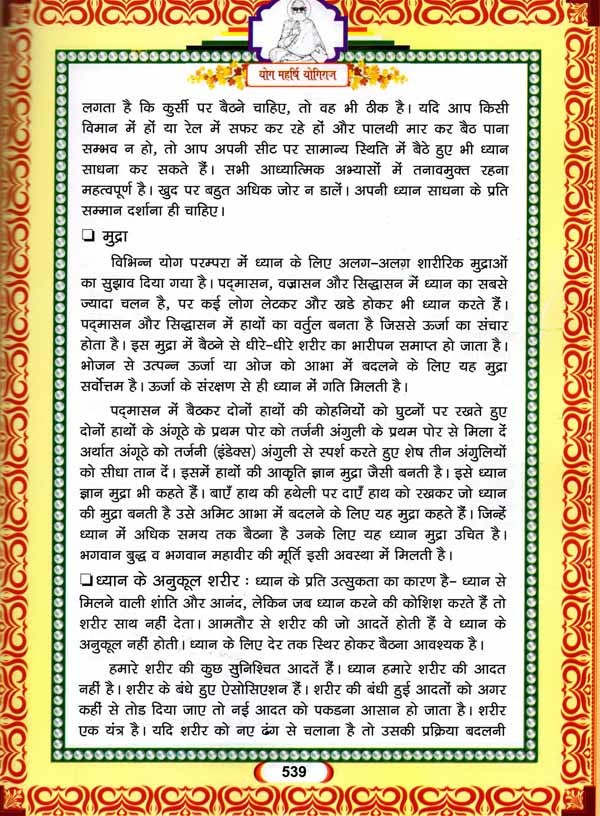 योग महर्षि योगिराज
लगता है कि कुर्सी पर बैठने चाहिए, तो वह भी ठीक है। यदि आप किसी
विमान में हों या रेल में सफर कर रहे हों और पालथी मार कर बैठ पाना
सम्भव न हो, तो आप अपनी सीट पर सामान्य स्थिति में बैठे हुए भी ध्यान
साधना कर सकते हैं। सभी आध्यात्मिक अभ्यासों में तनावमुक्त रहना
महत्वपूर्ण है। खुद पर बहुत अधिक जोर न डालें। अपनी ध्यान साधना के प्रति
सम्मान दर्शाना ही चाहिए।
❑ मुद्रा
विभिन्न योग परम्परा में ध्यान के लिए अलग-अलग शारीरिक मुद्राओं
का सुझाव दिया गया है। पद्मासन, वज्रासन और सिद्धासन में ध्यान का सबसे
ज्यादा चलन है, पर कई लोग लेटकर और खडे होकर भी ध्यान करते हैं।
पद्मासन और सिद्धासन में हाथों का वर्तुल बनता है जिससे ऊर्जा का संचार
होता है। इस मुद्रा में बैठने से धीरे-धीरे शरीर का भारीपन समाप्त हो जाता है।
भोजन से उत्पन्न ऊर्जा या ओज को आभा में बदलने के लिए यह मुद्रा
सर्वोत्तम है। ऊर्जा के संरक्षण से ही ध्यान में गति मिलती है।
पद्मासन में बैठकर दोनों हाथों की कोहनियों को घुटनों पर रखते हुए
दोनों हाथों के अंगूठे के प्रथम पोर को तर्जनी अंगुली के प्रथम पोर से मिला दें
अर्थात अंगूठे को तर्जनी (इंडेक्स) अंगुली से स्पर्श करते हुए शेष तीन अंगुलियों
को सीधा तान दें। इसमें हाथों की आकृति ज्ञान मुद्रा जैसी बनती है। इसे ध्यान
ज्ञान मुद्रा भी कहते हैं। बाएँ हाथ की हथेली पर दाएँ हाथ को रखकर जो ध्यान
की मुद्रा बनती है उसे अमिट आभा में बदलने के लिए यह मुद्रा कहते हैं। जिन्हें
ध्यान में अधिक समय तक बैठना है उनके लिए यह ध्यान मुद्रा उचित है।
भगवान बुद्ध व भगवान महावीर की मूर्ति इसी अवस्था में मिलती है।
❑ ध्यान के अनुकूल शरीर : ध्यान के प्रति उत्सुकता का कारण है- ध्यान से
मिलने वाली शांति और आनंद, लेकिन जब ध्यान करने की कोशिश करते हैं तो
शरीर साथ नहीं देता। आमतौर से शरीर की जो आदतें होती हैं वे ध्यान के
अनुकूल नहीं होती। ध्यान के लिए देर तक स्थिर होकर बैठना आवश्यक है।
हमारे शरीर की कुछ सुनिश्चित आदतें हैं। ध्यान हमारे शरीर की आदत
नहीं है। शरीर के बंधे हुए ऐसोसिएशन हैं। शरीर की बंधी हुई आदतों को अगर
कहीं से तोड दिया जाए तो नई आदत को पकडना आसान हो जाता है। शरीर
एक यंत्र है। यदि शरीर को नए ढंग से चलाना है तो उसकी प्रक्रिया बदलनी
539